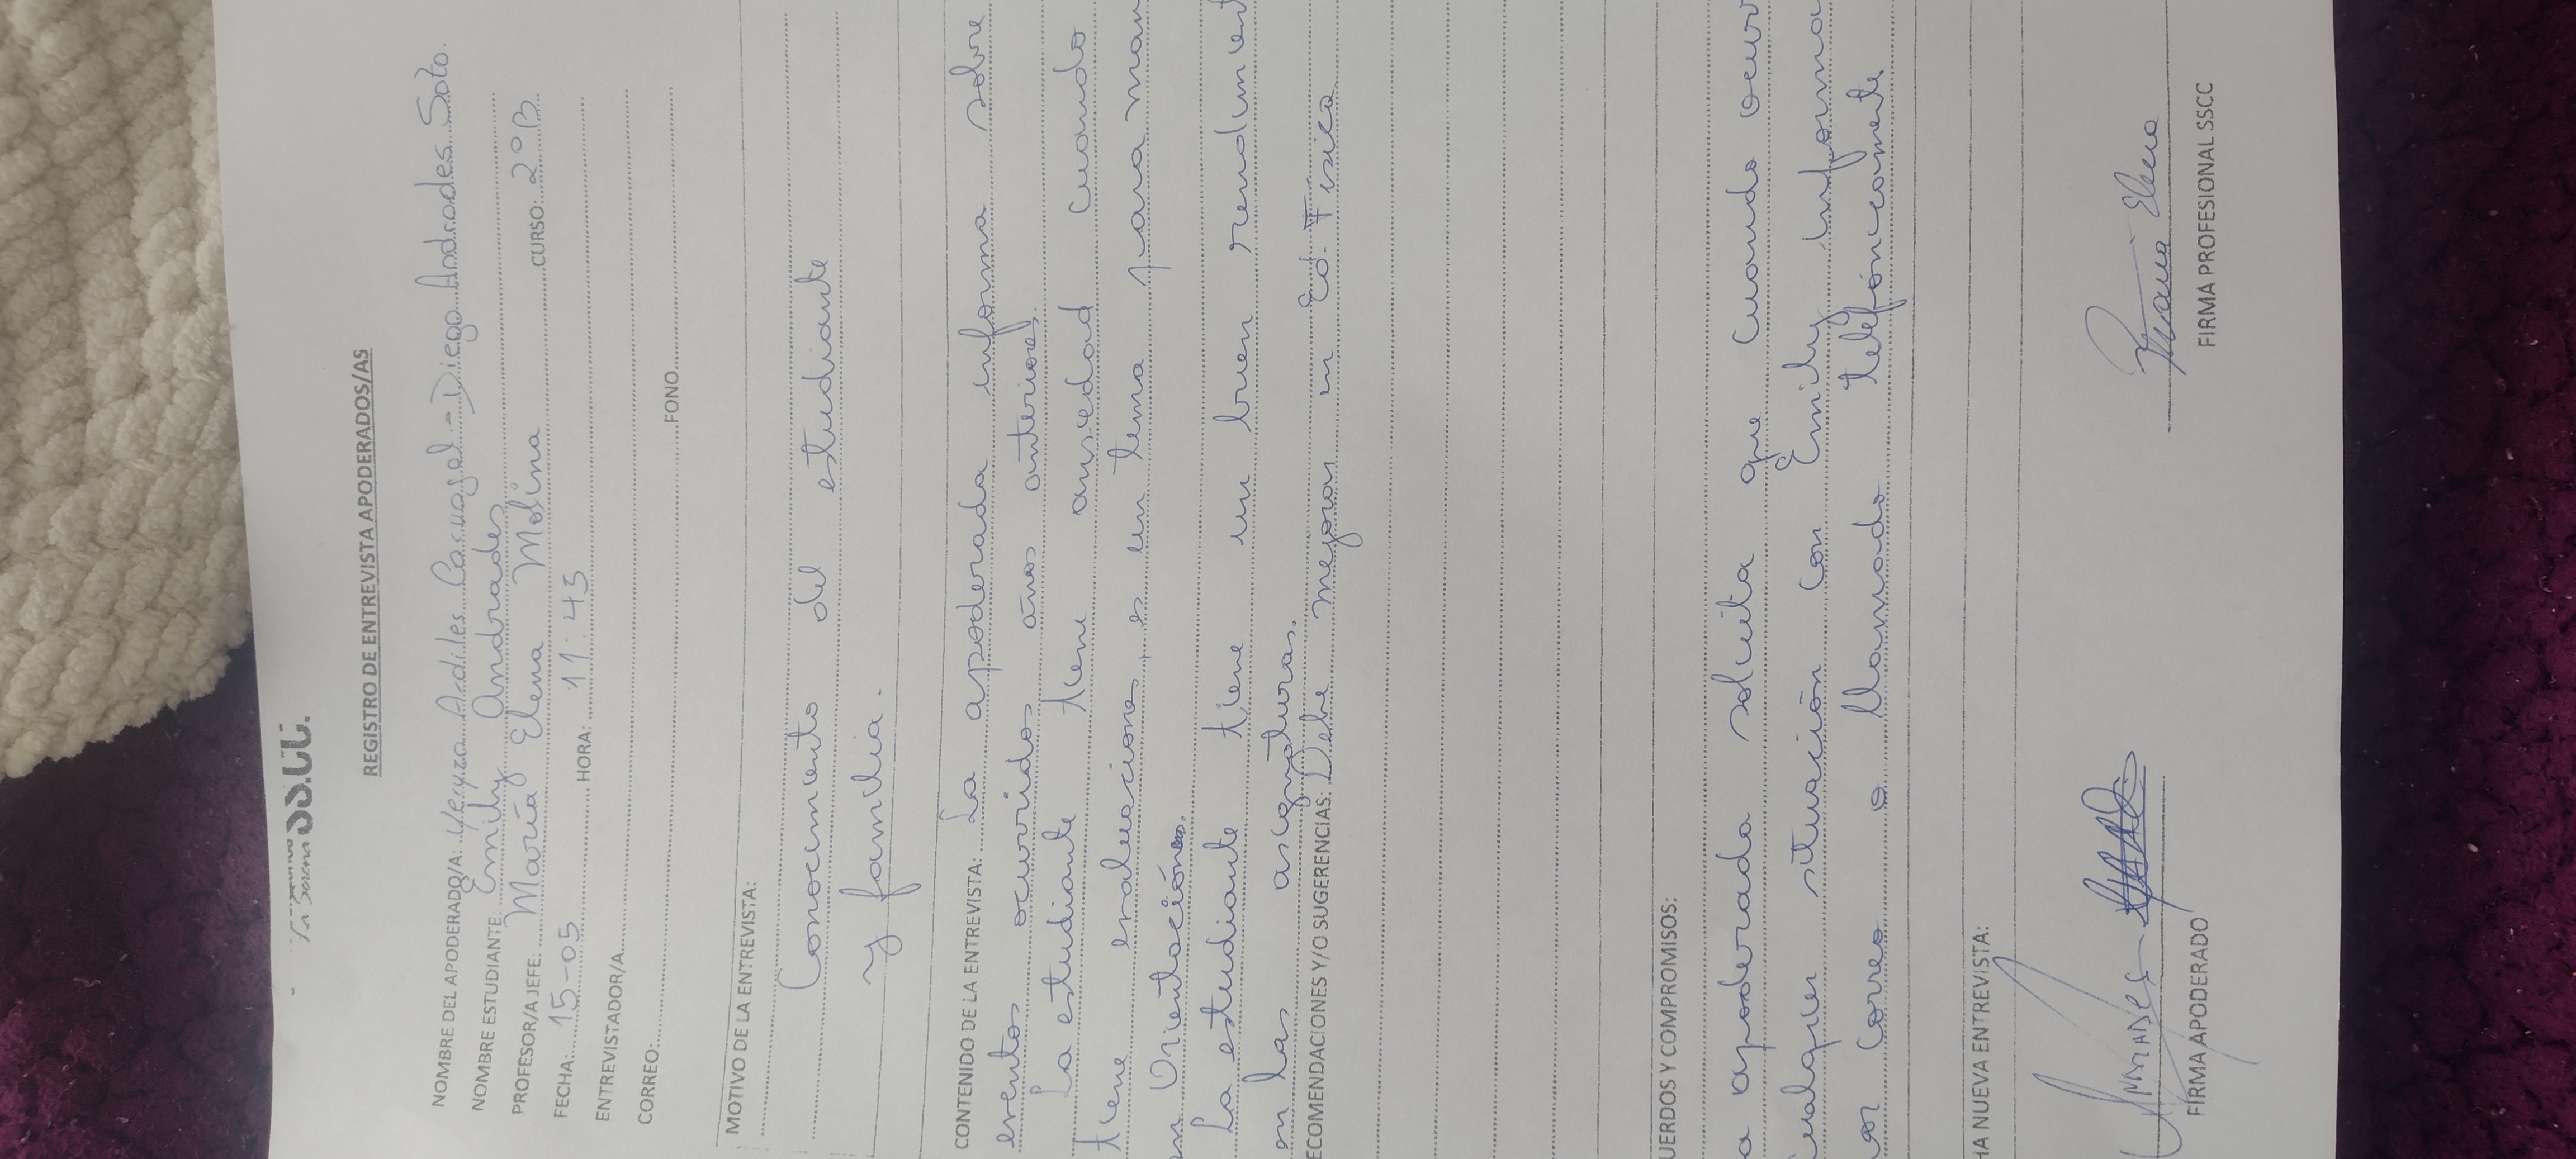 La Serena SS.CC.
REGISTRO DE ENTREVISTA APODERADOS/AS
NOMBRE DEL APODERADO/A: Ardiles - Diego Andrades Soto.
NOMBRE ESTUDIANTE: Emily Andrades
PROFESOR/A JEFE: María Elena Molina CURSO: 2°B
FECHA: 15-05 HORA: 11:45
ENTREVISTADOR/A
CORREO: FONO
MOTIVO DE LA ENTREVISTA:
Conocimiento del estudiante
y familia.
CONTENIDO DE LA ENTREVISTA: La apoderada informa sobre
eventos ocurridos años anteriores.
La estudiante tiene ansiedad cuando
tiene evaluaciones, es un tema para
en Orientación.
La estudiante tiene un buen rendimient
en las asignaturas.
ECOMENDACIONES Y/O SUGERENCIAS: Debe mejorar en Ed. Física
UERDOS Y COMPROMISOS:
a apoderada solicita que cuando ocurr
cualquier situación con Emily informa
por correo o llamado telefónicamente
HA NUEVA ENTREVISTA:
FIRMA APODERADO FIRMA PROFESIONAL SSCC